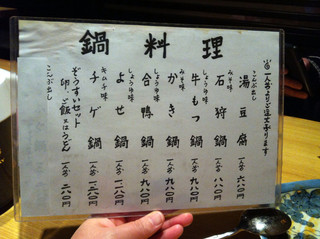 鍋料理
一人前よりご注文承ります
こんぶだし
湯豆腐 一人前 六〇〇円
みそ味
石狩鍋 一人前 八八〇円
しょうゆ味
牛もつ鍋 一人前 九八〇円
みそ味
かき鍋 一人前 九八〇円
しょうゆ味
合鴨鍋 一人前 九八〇円
しょうゆ味
よせ鍋 一人前 一二八〇円
キムチ味
チゲ鍋 一人前 一二八〇円
ぞうすいセット
卵、ご飯又はうどん 一人前 二八〇円
こんぶだし